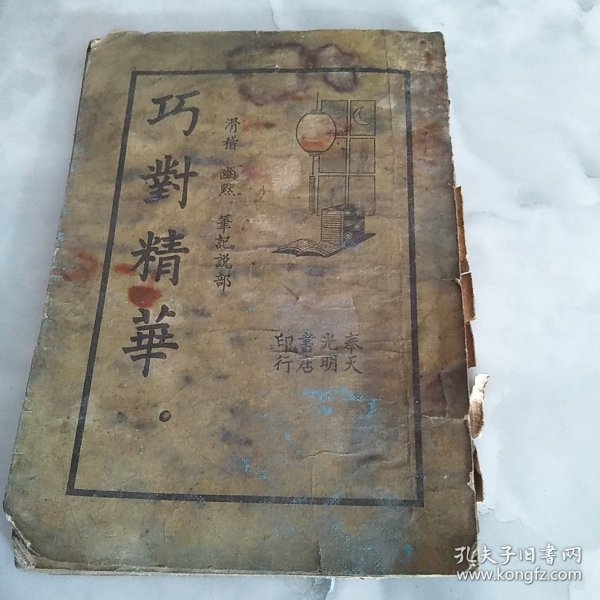 巧對精華。
滑稽 幽默 筆記説部
奉天
光明
書店
印行
孔夫子旧书网
www.kongfz.com